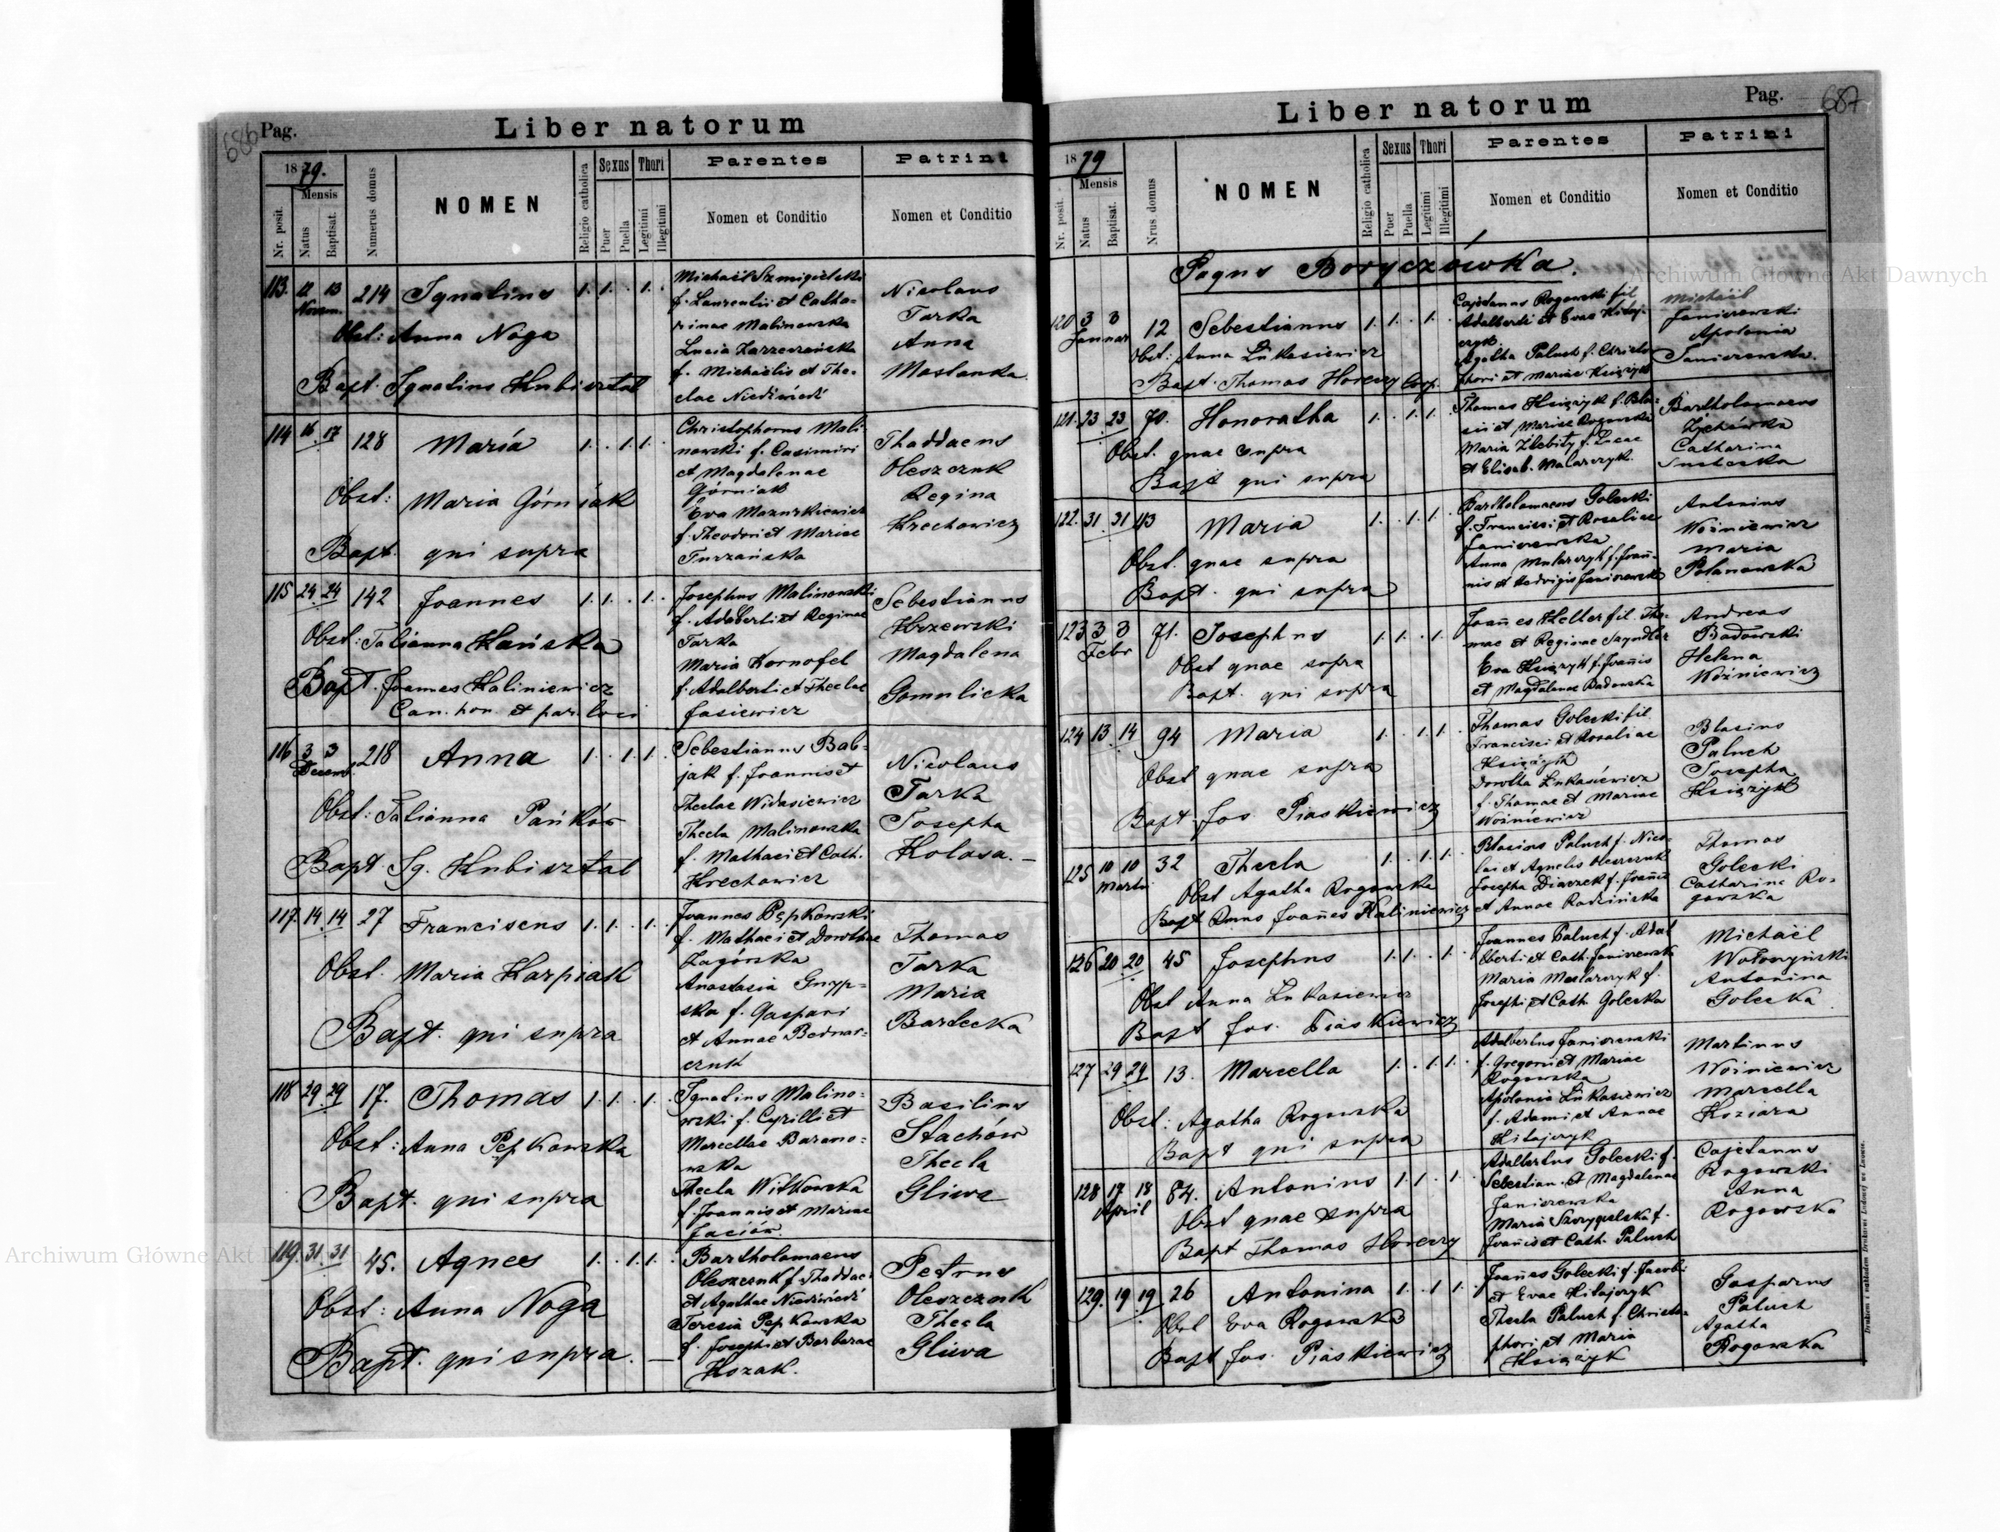 686 Pag.
Liber natorum
1879.
Mensis
Nr. posit.
Natus
Baptisat.
Numerus domus
NOMEN
Religio catholica
Sexus
Puer
Puella
Thori
Legitimi
Illegitimi
Parentes
Nomen et Conditio
Patrini
Nomen et Conditio
113. 12 13 Novem. 214 Ignatius 1. 1. . 1. .
Obst: Anna Noga
Bapt. Ignatius Kubisztal
Michaël Szmigielski
f. Laurentii et Catha-
rinae Malinowska
Lucia Zarzerzańska
f. Michaëlis et The-
clae Niedźwiedź
Nicolaus
Tarka
Anna
Maslanka
114 16 17 128 Maria 1. . 1. 1.
Obst: Maria Górniak
Bapt. qui supra
Christophorus Mali-
nowski f. Casimiri
et Magdalenae
Górniak
Eva Mazurkiewicz
f. Theodori et Mariae
Turzańska
Thaddaeus
Oleszczuk
Regina
Krechowicz
115 24 24 142 Joannes 1. 1. . 1. .
Obst: Tatianna Hańska
Bapt. Joannes Kaliniewicz
Can. hon. et par. loci
Josephus Malinowski
f. Adalberti et Reginae
Tarka
Maria Kornofel
f. Adalberti et Theclae
Jasiewicz
Sebestianus
Krzewski
Magdalena
Gomulicka
116 3 3 Decemb. 218 Anna 1. . 1. 1. .
Obst: Tatianna Pańków
Bapt. Ig. Kubisztal
Sebestianus Bab-
jak f. Joannis et
Theclae Widasiewicz
Thecla Malinowska
f. Mathaei et Cath.
Krechowicz
Nicolaus
Tarka
Josepha
Kolasa. —
117. 14. 14 27 Franciscus 1. 1. . 1. .
Obst. Maria Karpiak
Bapt. qui supra
Joannes Pępkowski
f. Mathaei et Dorothae
Zagórska
Anastasia Gnyp-
ska f. Gaspari
et Annae Bednar-
czuk
Thomas
Tarka
Maria
Bardecka
118 29. 29 17. Thomas 1. 1. . 1. .
Obst: Anna Pępkowska
Bapt. qui supra
Ignatius Malino-
wski f. Cyrilli et
Marcellae Barano-
wska
Thecla Witkowska
f. Joannis et Mariae
Jaciów.
Basilius
Stachów
Thecla
Gliwa
119. 31. 31 45. Agnes 1. . 1. 1. .
Obst: Anna Noga
Bapt. qui supra. —
Bartholomaeus
Oleszczuk f. Thaddaei
et Agathae Niedźwiedź
Teresia Pępkowska
f. Josephi et Barbarae
Kozak.
Petrus
Oleszczuk
Thecla
Gliwa
Liber natorum
Pag. 687
1879
Mensis
Nr. posit.
Natus
Baptisat.
Nrus domus
NOMEN
Religio catholica
Sexus
Puer
Puella
Thori
Legitimi
Illegitimi
Parentes
Nomen et Conditio
Patrini
Nomen et Conditio
Pagus Boryczówka.
120 3 3 Januar 12 Sebestianus 1. 1. . 1. .
Obst: Anna Łukasiewicz
Bapt. Thomas Horeczy Coop.
Cajetanus Rogowski fil
Adalberti et Evae Kitaj-
czyk
Agatha Paluch f. Christo-
phori et Mariae Księżyk
Michaël
Janiszewski
Apolonia
Janiszewska.
121. 23 23 70. Honoratha 1. . 1. 1.
Obst. quae supra
Bapt qui supra
Thomas Księżyk f. Bla-
sii et Mariae Rogowski
Maria Zlebity f. Lucae
et Elisab. Malarczyk.
Bartholomaeus
Catharina
122. 31. 31 43 Maria 1. . 1. 1. .
Obst. quae supra
Bapt. qui supra
Bartholomaeus Golecki
f. Francisci et Rosaliae
Janiszewska
Anna Malarczyk f. Joan̄-
nis et Hedvigis Janiszewska
Antonius
Woźniewicz
Maria
Polanowska
123 3 3 Febr 71. Josephus 1. 1. . 1.
Obst quae supra
Bapt. qui supra
Joan̄es Heller fil. Tho-
mae et Reginae
Eva Księżyk f. Joan̄is
et Magdalenae Badowska
Andreas
Badowski
Helena
Woźniewicz
124 13. 14 94 Maria 1. . 1. 1.
Obst quae supra
Bapt. Jos. Piaskiewicz
Thomas Golecki fil.
Francisci et Rosaliae
Księżyk
Dorotha Łukasiewicz
f. Thomae et Mariae
Woźniewicz
Blasius
Paluch
Josepha
Księżyk
125 10 10 Martii 32 Thecla 1. . 1. 1.
Obst Agatha Rogowska
Bapt Joan̄es Kaliniewicz
Blasius Paluch f. Nico-
lai et Agnetis Oleszczuk
Josepha Diaczek f. Joan̄is
et Annae Radzińska
Thomas
Golecki
Catharina Ro-
gowska
126 20 20 45 Josephus 1. 1. . 1.
Obst Anna Łukasiewicz
Bapt Jos. Piaskiewicz
Joannes Paluch f. Adal-
berti et Cath. Janiszewska
Maria Malarczyk f.
Josephi et Cath. Golecka
Michaël
Wołoszyński
Antonina
Golecka
127 29 29 13. Marcella 1. . 1. 1. .
Obst: Agatha Rogowska
Bapt qui supra
Adalbertus Janiszewski
f. Gregorii et Mariae
Rogowska
Apolonia Łukasiewicz
f. Adami et Annae
Kitajczyk
Martinus
Woźniewicz
Marcella
Koziara
128 17 18 April 84. Antonius 1. 1. . 1.
Obst quae supra
Bapt Thomas Horeczy
Adalbertus Golecki f.
Sebestian. et Magdalenae
Janiszewska
Maria f.
Joan̄is et Cath. Paluch
Cajetanus
Rogowski
Anna
Rogowska
129. 19 19 26 Antonina 1. . 1 1
Obst Eva Rogowska
Bapt Jos. Piaskiewicz
Joan̄es Golecki f. Jacobi
et Evae Kitajczyk
Thecla Paluch f. Christo-
phori et Maria
Księżyk
Gasparus
Paluch
Agatha
Rogowska
Drukiem i nakładem Drukarni Ludowej we Lwowie.
Archiwum Główne Akt Dawnych
Archiwum Główne Akt Dawnych